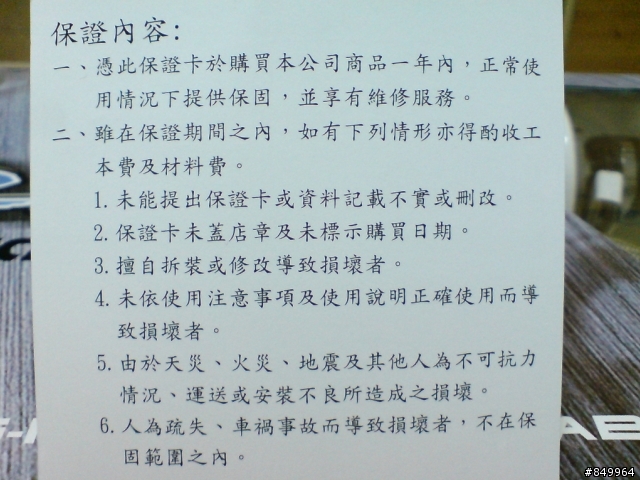 保證內容:
一、憑此保證卡於購買本公司商品一年內，正常使
用情況下提供保固，並享有維修服務。
二、雖在保證期間之內，如有下列情形亦得酌收工
本費及材料費。
1. 未能提出保證卡或資料記載不實或刪改。
2. 保證卡未蓋店章及未標示購買日期。
3. 擅自拆裝或修改導致損壞者。
4. 未依使用注意事項及使用說明正確使用而導
致損壞者。
5. 由於天災、火災、地震及其他人為不可抗力
情況、運送或安裝不良所造成之損壞。
6. 人為疏失、車禍事故而導致損壞者，不在保
固範圍之內。
#849964